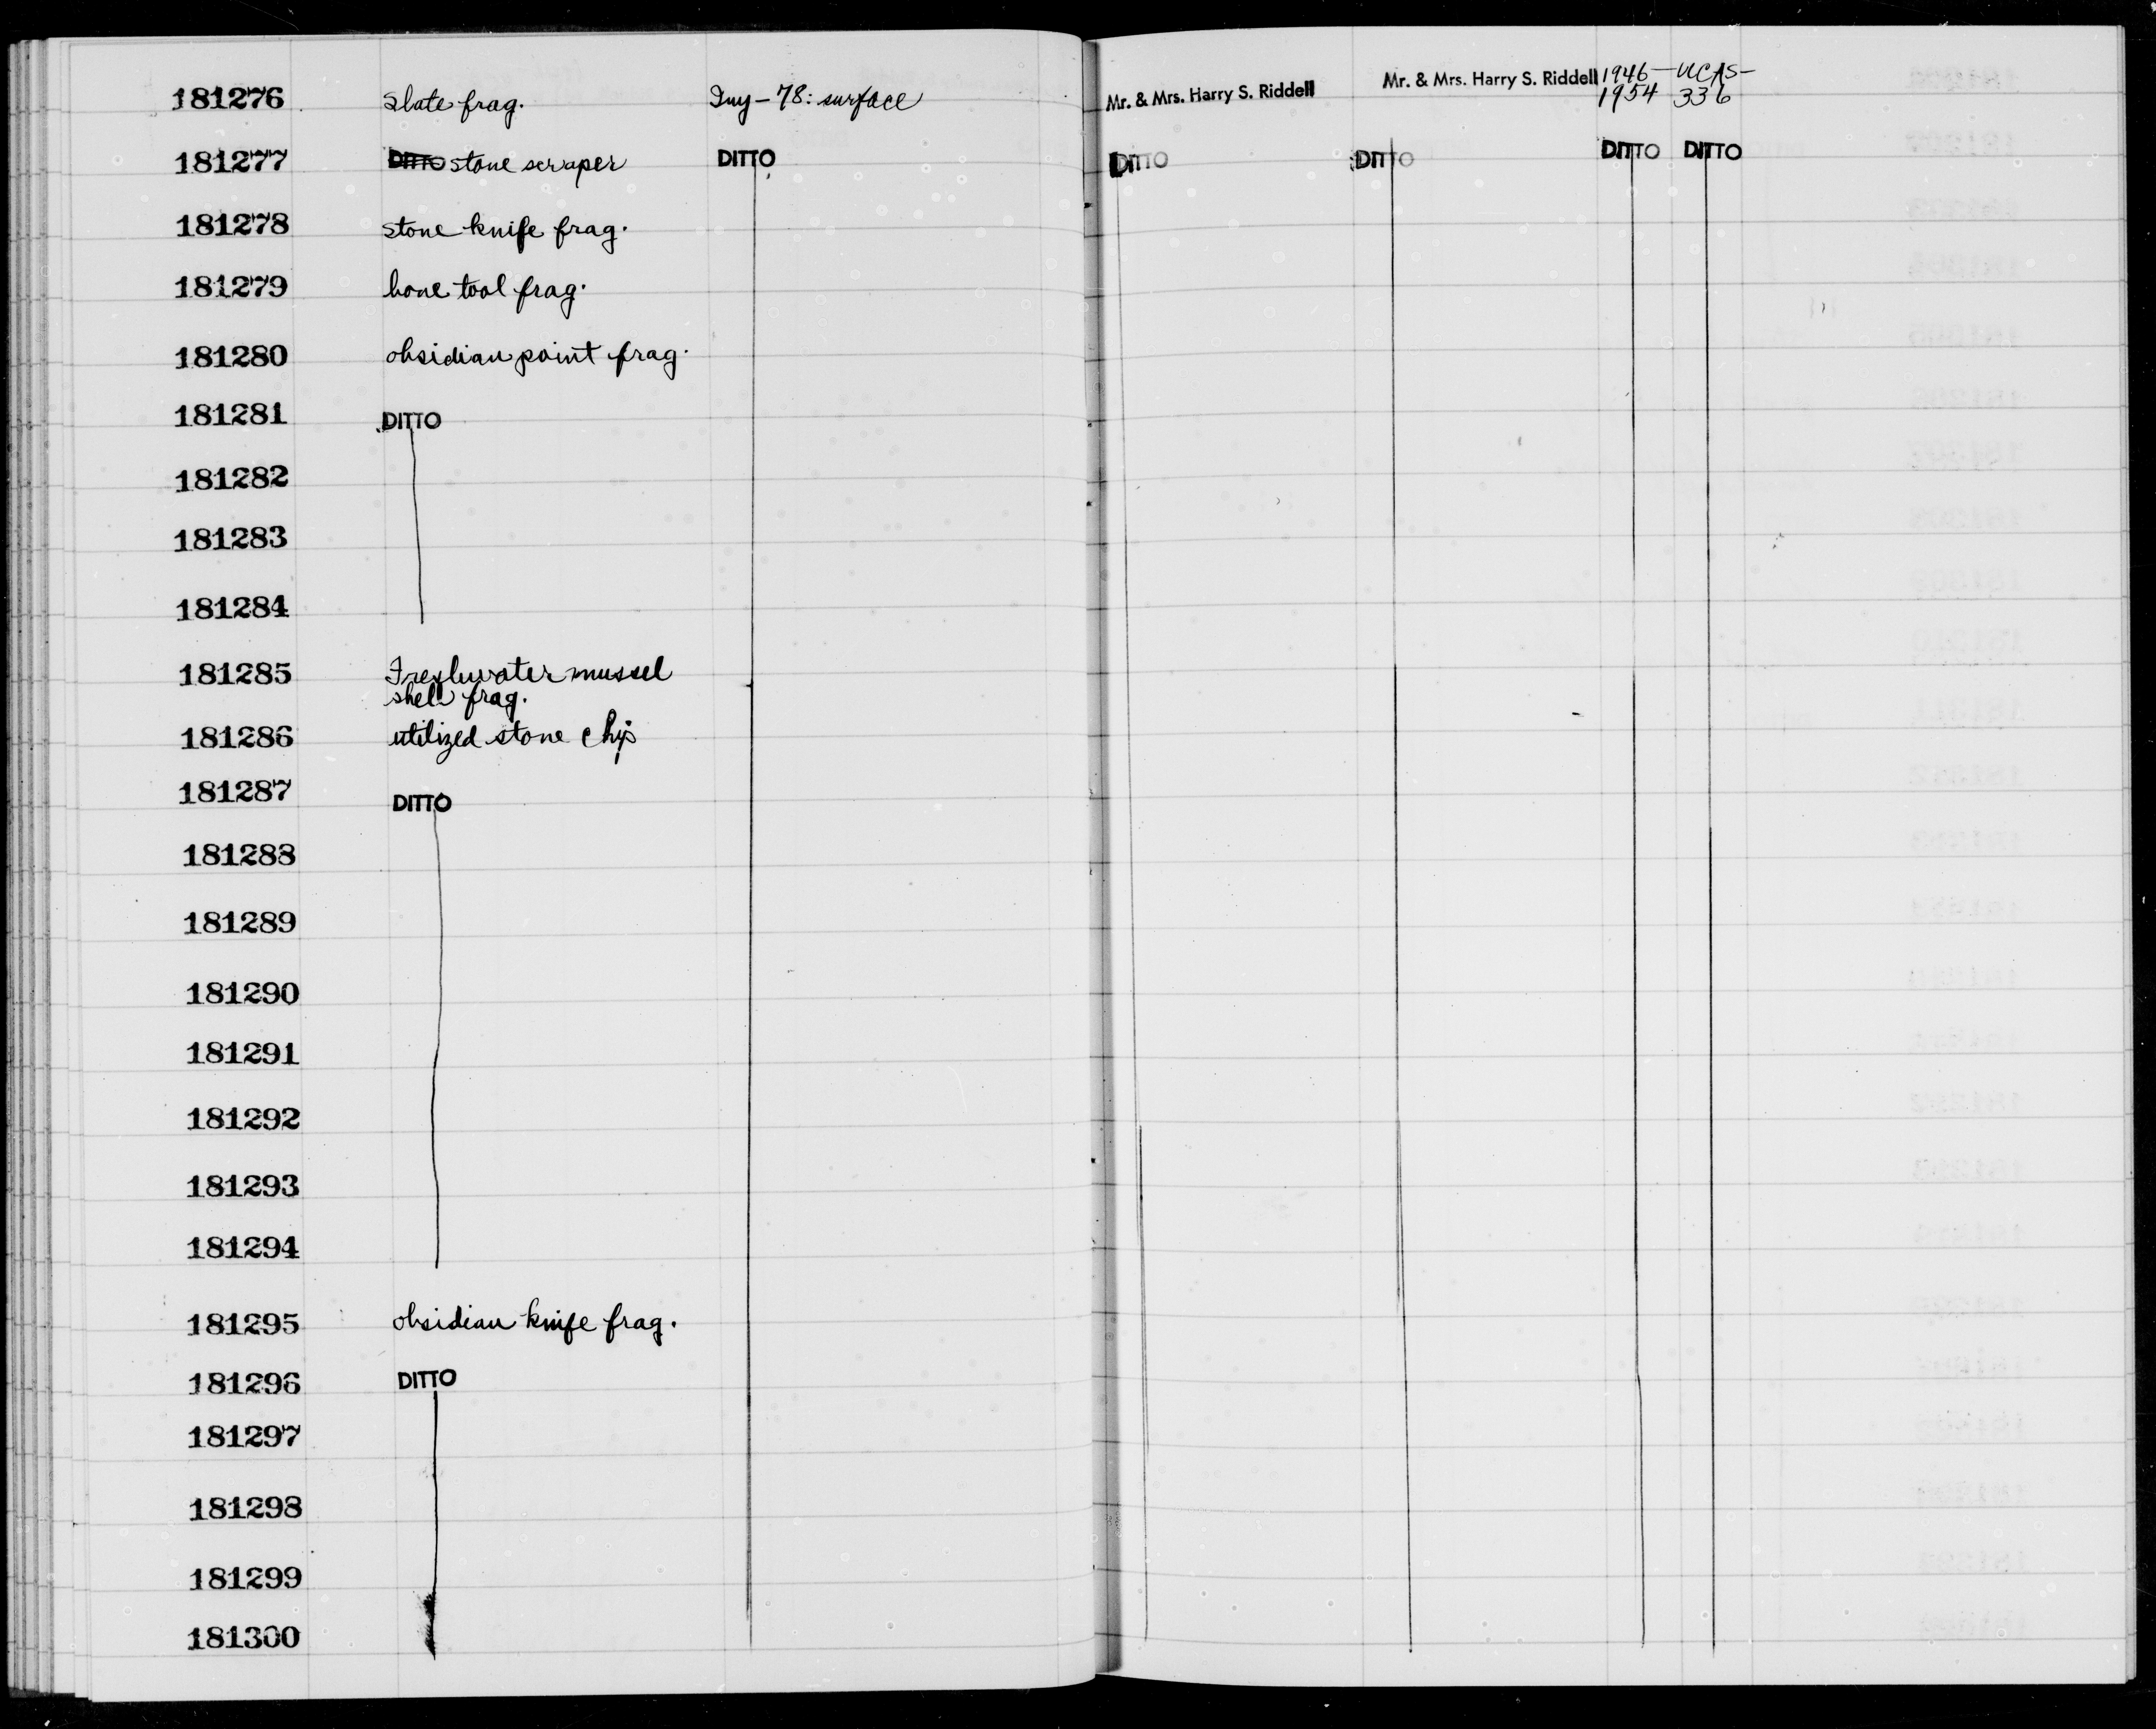 181276 slate frag. Iny-78: surface Mr. & Mrs. Harry S. Riddell Mr. & Mrs. Harry S. Riddell 1946- UCAS-
1954 336
181277 DITTO stone scraper DITTO DITTO DITTO DITTO DITTO
181278 stone knife frag.
181279 bone tool frag.
181280 obsidian point frag.
181281 DITTO
181282
181283
181284
181285 Freshwater mussel
shell frag.
181286 utilized stone chip
181287 DITTO
181288
181289
181290
181291
181292
181293
181294
181295 obsidian knife frag.
181296 DITTO
181297
181298
181299
181300